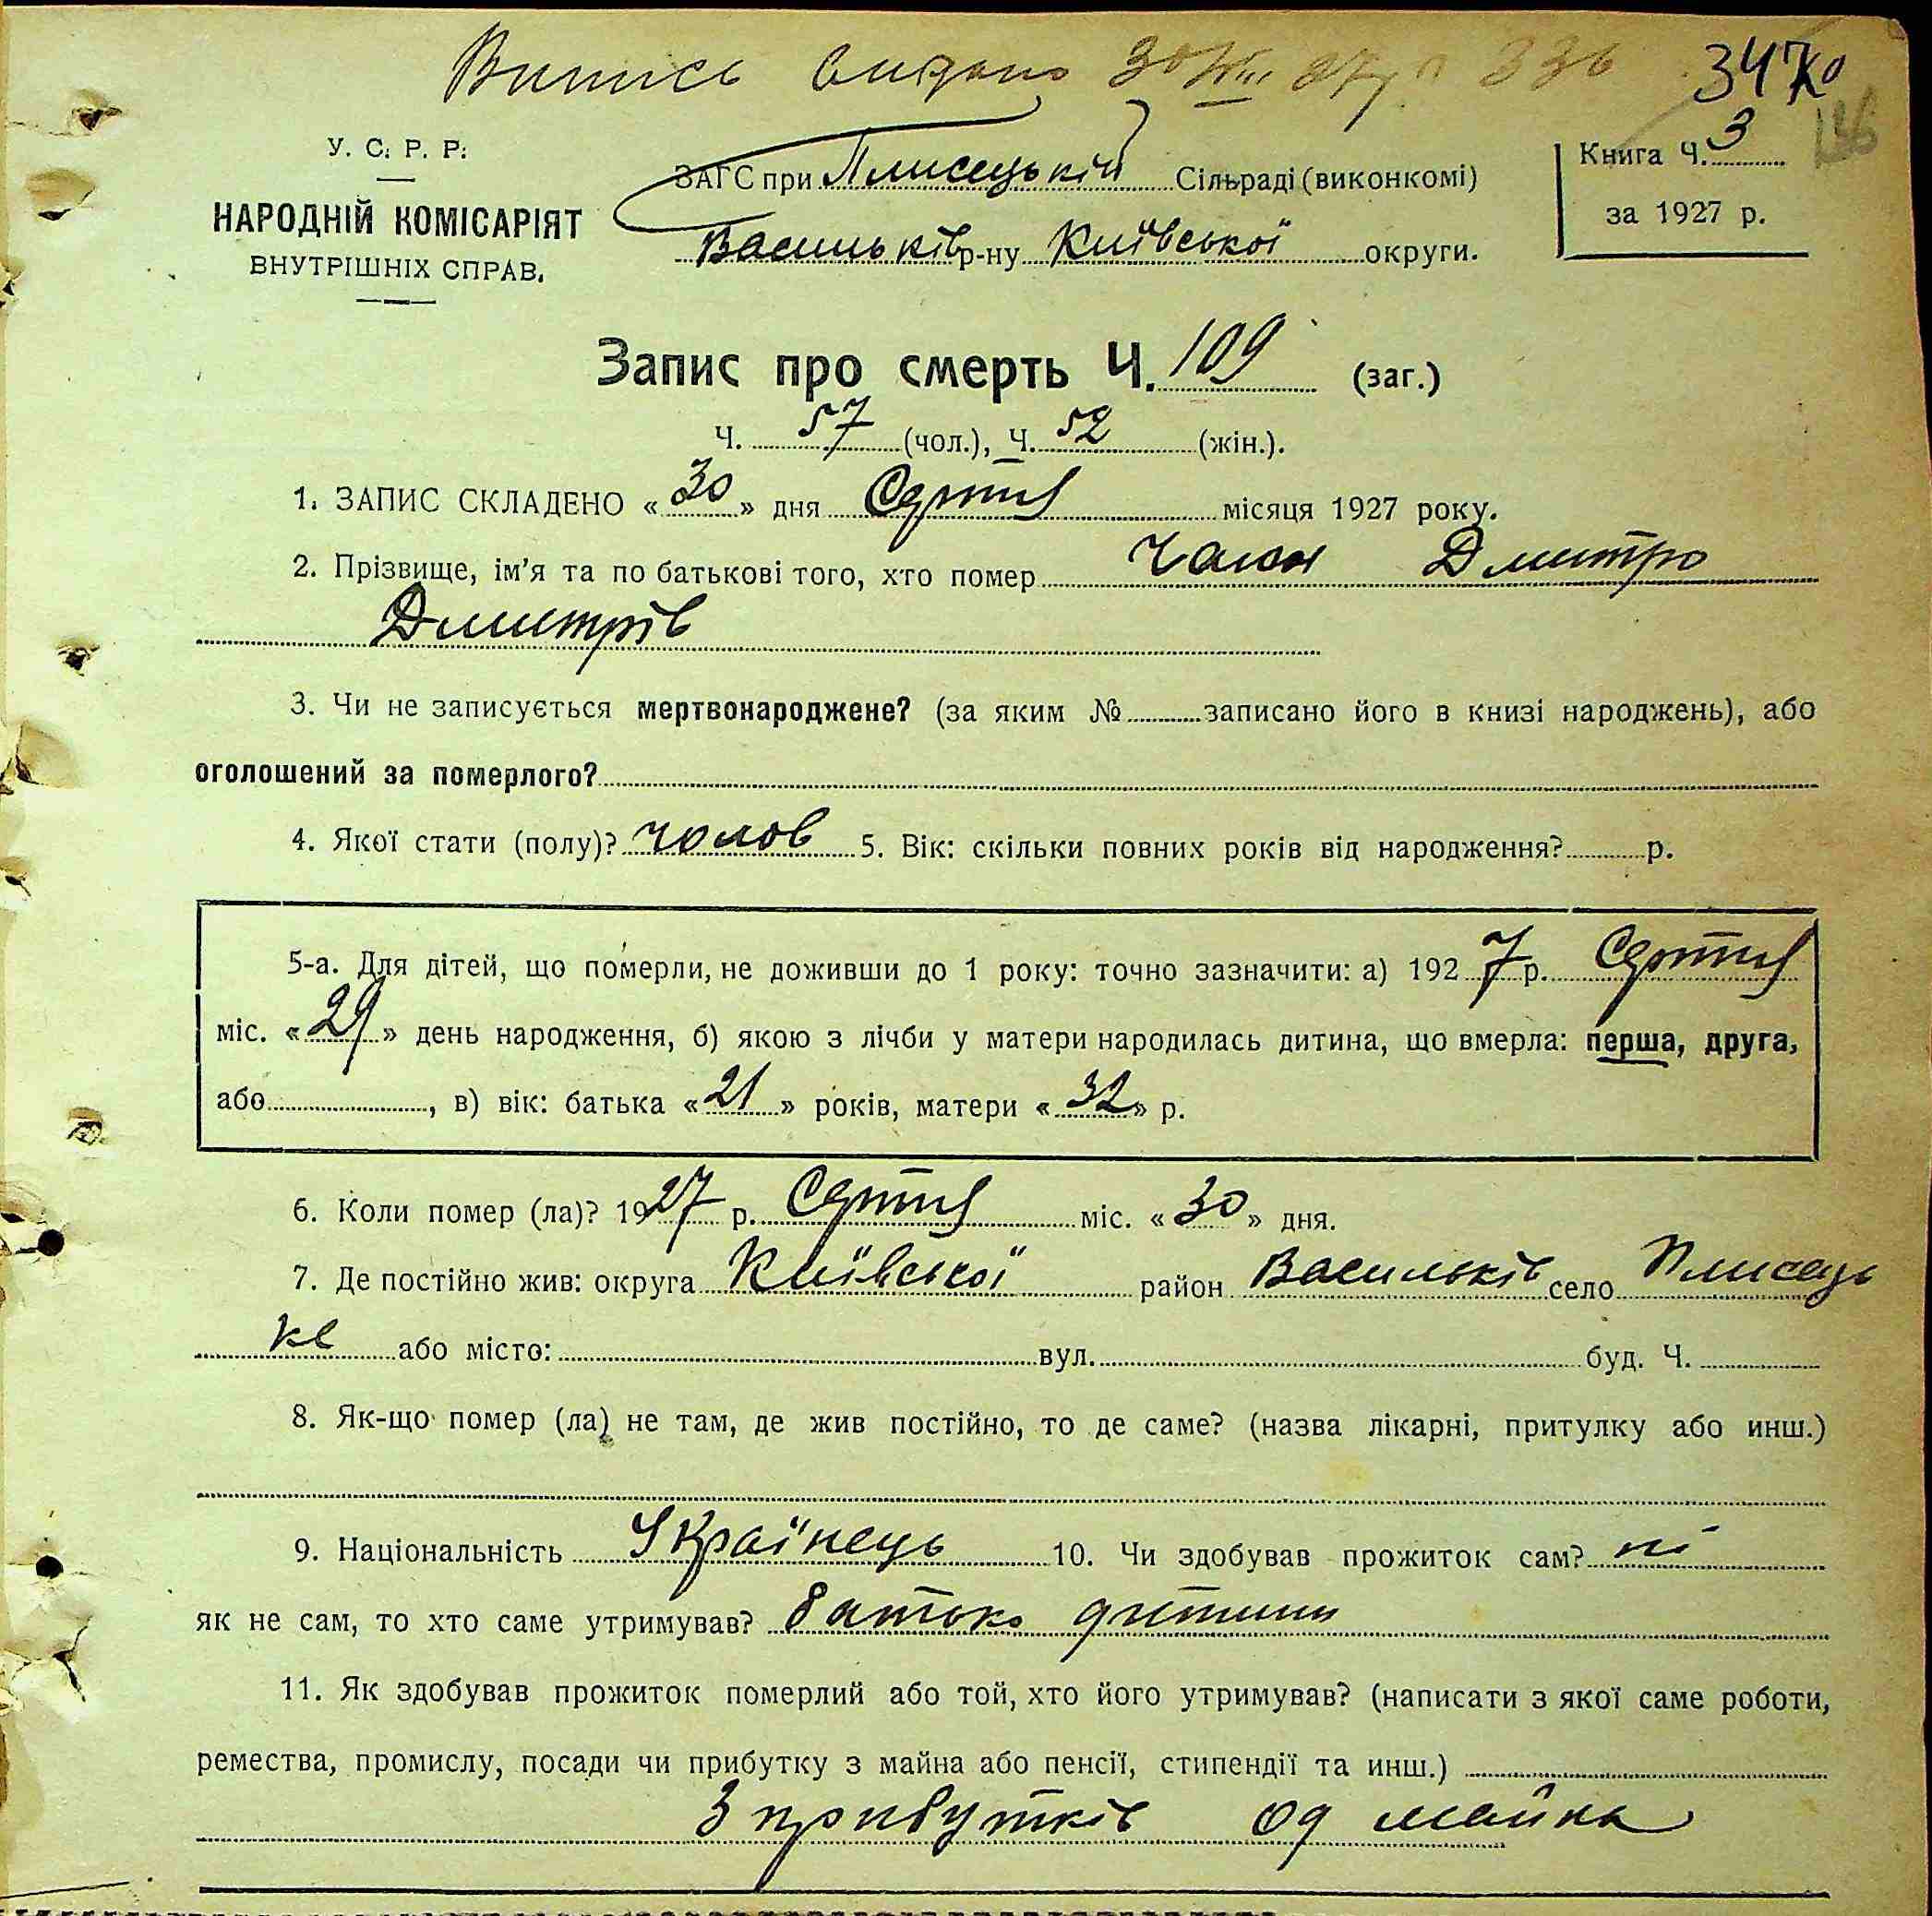 Випись видано 30 VIII 27 р 336 347
У. С. Р. Р.
НАРОДНІЙ КОМІСАРІЯТ
ВНУТРІШНІХ СПРАВ.
ЗАГС при Плисецькій Сільраді (виконкомі)
Васильків р-ну Київської округи.
Книга Ч. 3
за 1927 р.
Запис про смерть Ч. 109 (заг.)
Ч. 57 (чол.), Ч. 52 (жін.).
1. ЗАПИС СКЛАДЕНО « 30 » дня Серпня місяця 1927 року.
2. Прізвище, ім'я та по батькові того, хто помер Дмитро
Дмитрів
3. Чи не записується мертвонароджене? (за яким № записано його в книзі народжень), або
оголошений за померлого?
4. Якої стати (полу)? чолов 5. Вік: скільки повних років від народження? р.
5-а. Для дітей, що померли, не доживши до 1 року: точно зазначити: а) 1927 р. Серпня
міс. « 29 » день народження, б) якою з лічби у матери народилась дитина, що вмерла: перша, друга,
або , в) вік: батька « 21 » років, матери « 32 » р.
6. Коли помер (ла)? 1927 р. Серпня міс. « 30 » дня.
7. Де постійно жив: округа Київської район Васильків село Плисець
ке або місто: вул. буд. Ч.
8. Як-що помер (ла) не там, де жив постійно, то де саме? (назва лікарні, притулку або инш.)
9. Національність Українець 10. Чи здобував прожиток сам? ні
як не сам, то хто саме утримував? батько дитини
11. Як здобував прожиток померлий або той, хто його утримував? (написати з якої саме роботи,
ремества, промислу, посади чи прибутку з майна або пенсії, стипендії та инш.)
З прибутків од майна